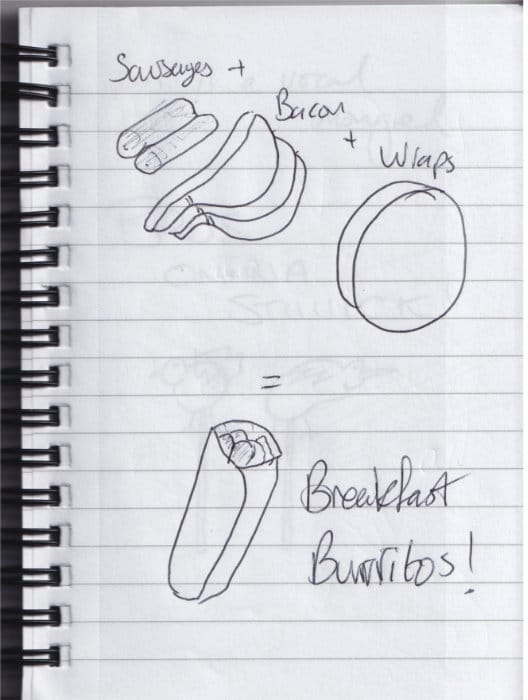 Sausages +
Bacon
+
Wraps
=
Breakfast
Burritos!